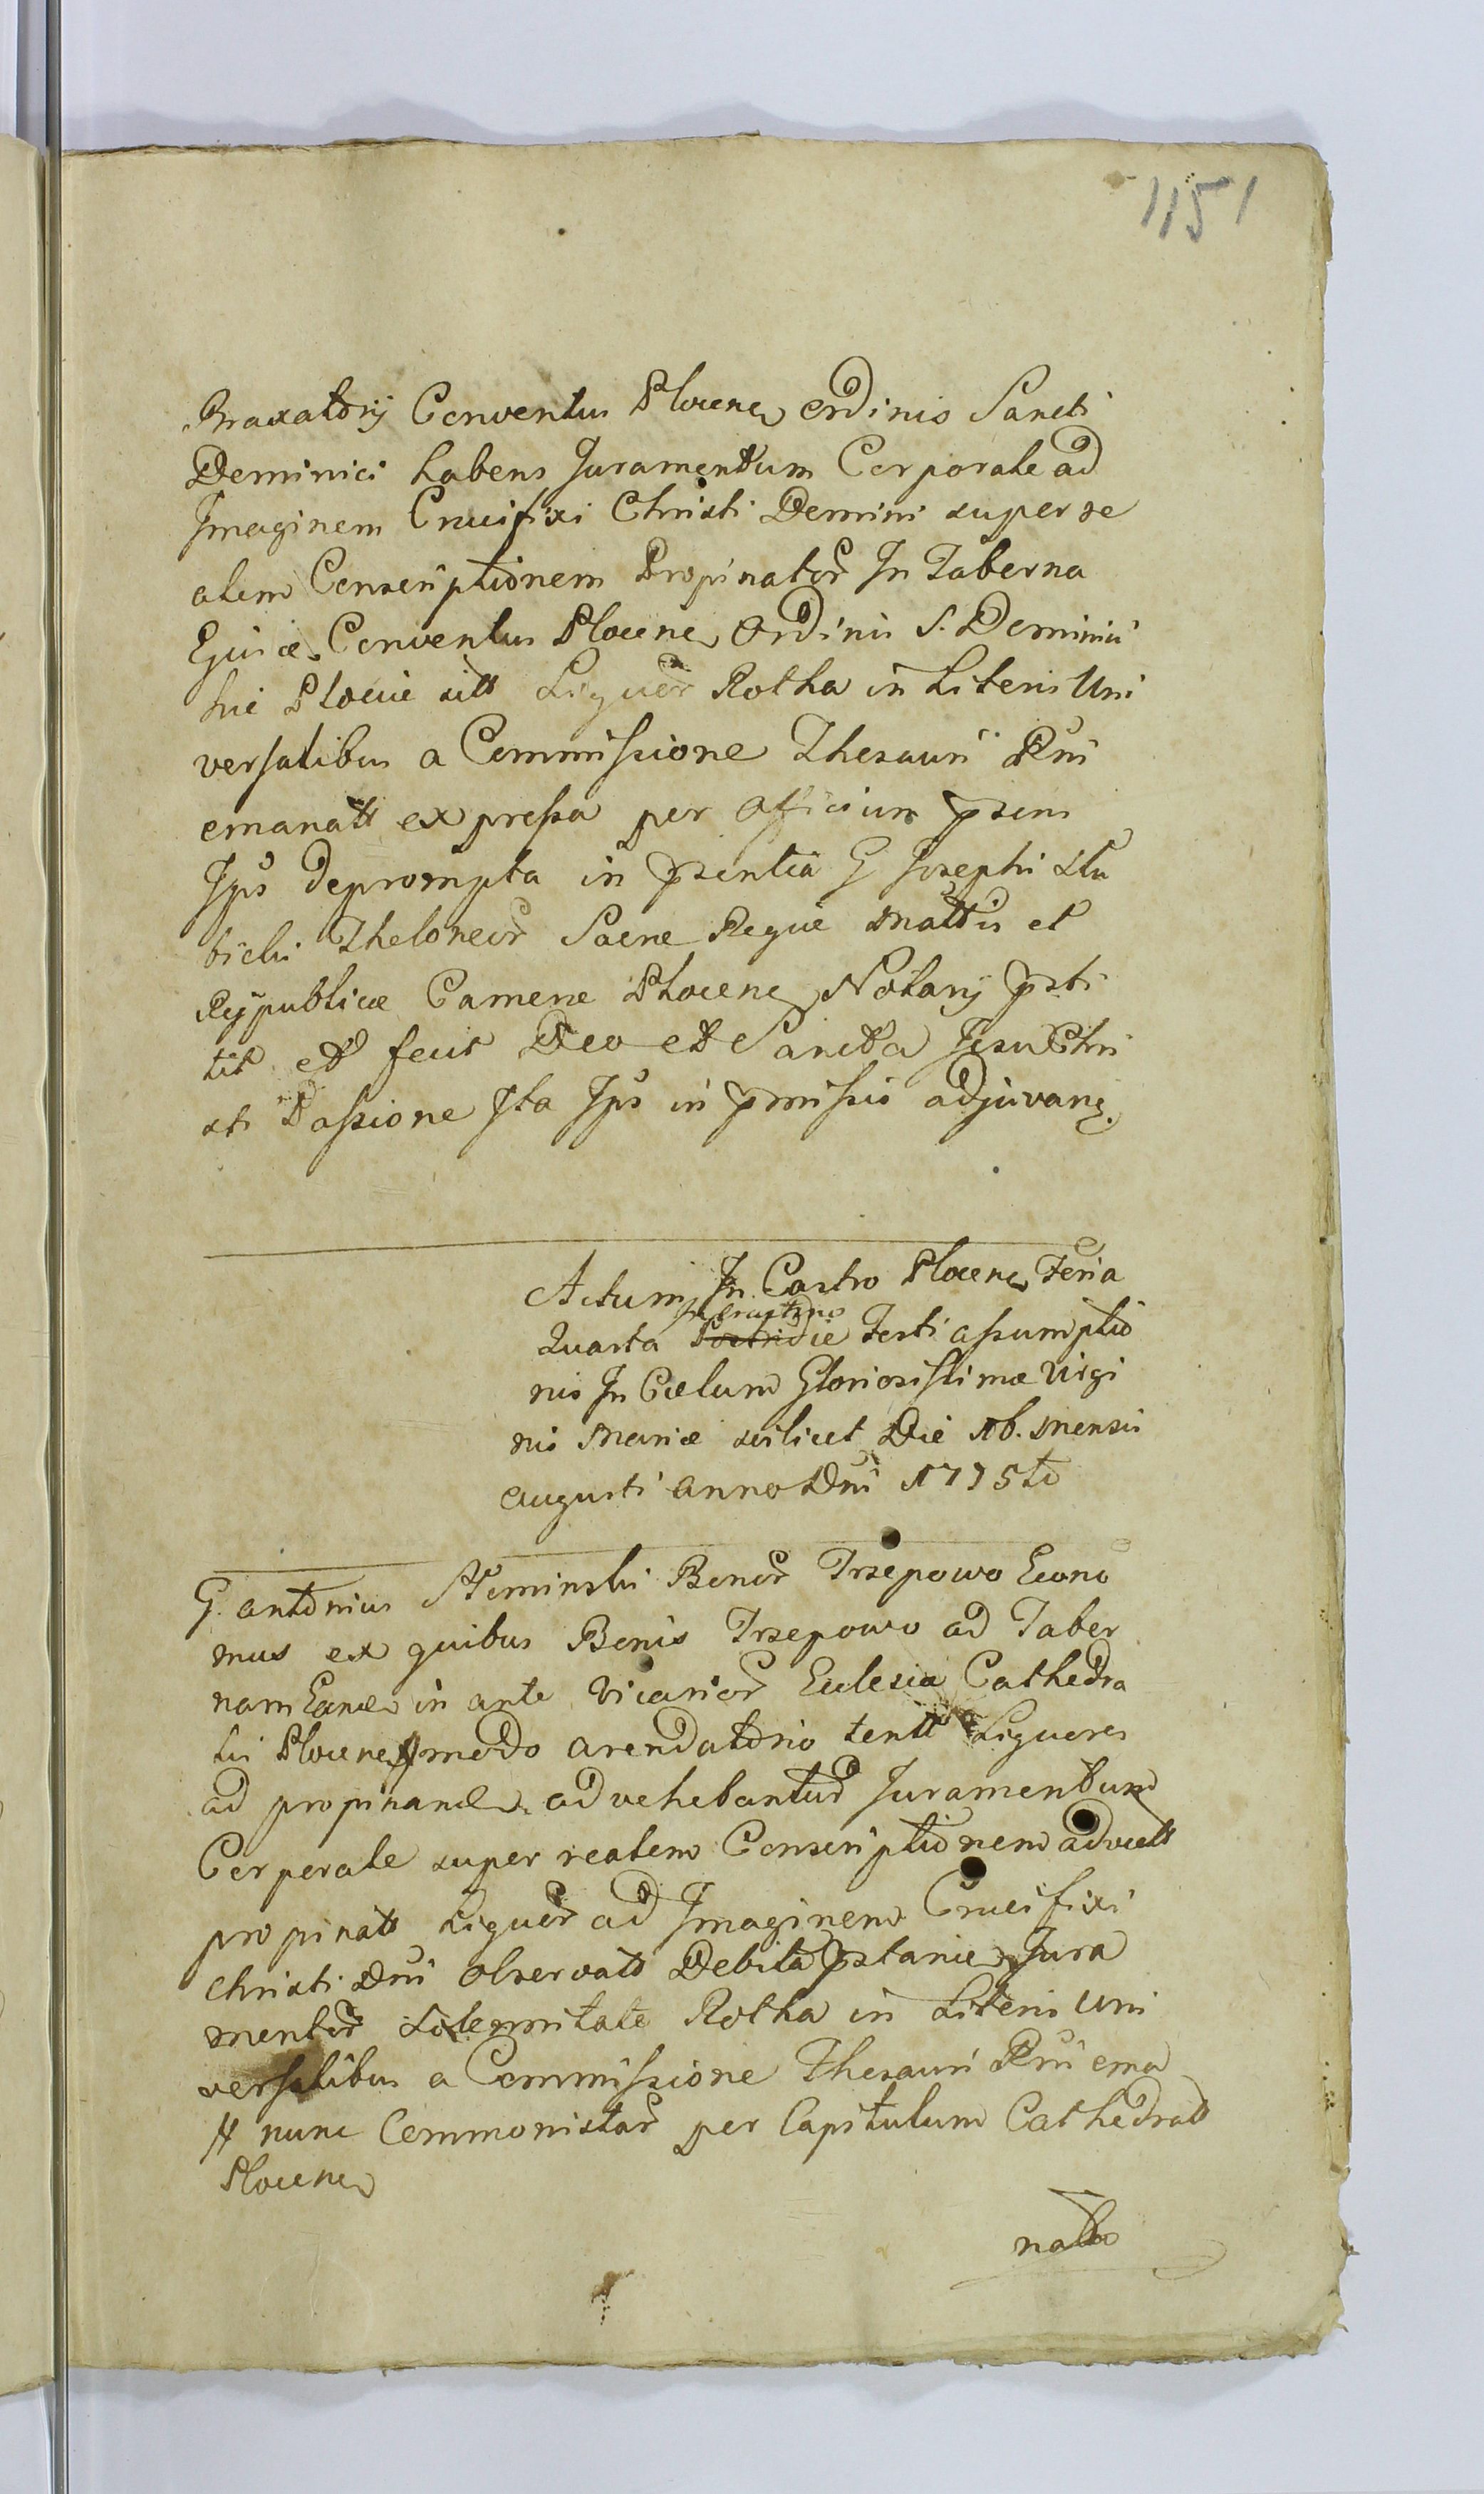 1151
Braxatorij Conventus Plocene Ordinis Sancti
Dominici habens Juramentum Corporale ad
Imaginem Crucifixi Christi Domini super re
alem Conscriptionem Propinator In Taberna
Ejusce Conventus Plocene Ordinis S. Dominici
hic Plociæ sitt Liquor Rotha in Literis Uni
versalibus a Commissione Thesauri Rni
emanatt expressa per officium psens
Ips deprompta in psentia G Josephi Stu
bicki Theloneor Sacræ Regiæ Mattis et
Reypublicæ Cameræ Plocene Notarij psti
tit et fecit Deo et Sancta Jesu Chri
sti Passione Ita Ips in pmissis adjuvane.
Actum In Castro Plocene Feria
in crastino
Quarta Postridie Festi assumptio
nis In Cælum Gloriosissimæ Virgi
nis Mariæ scilicet Die 16. Mensis
augusti anno Dni 1775to
G. antonius Slominski Bonor Trzepowo Econo
mus ex quibus Bonis Trzepowo ad Taber
nam in ante Vicarior Eclesiæ Cathedra
lis Plocene # modo arendatorio tentt Liquores
ad propinand advehebantur Juramentum
Corporale super realem Conscriptionem advectt
propinatt Liquor ad Imaginem Crucifixi
Christi Dni observatt Debita pstanie Jura
mentor Solemnitate Rotha in Literis Uni
versalibus a Commissione Thesauri Rni ema
# nunc Commonistar per Capitulum Cathedratt
Plocene
natto